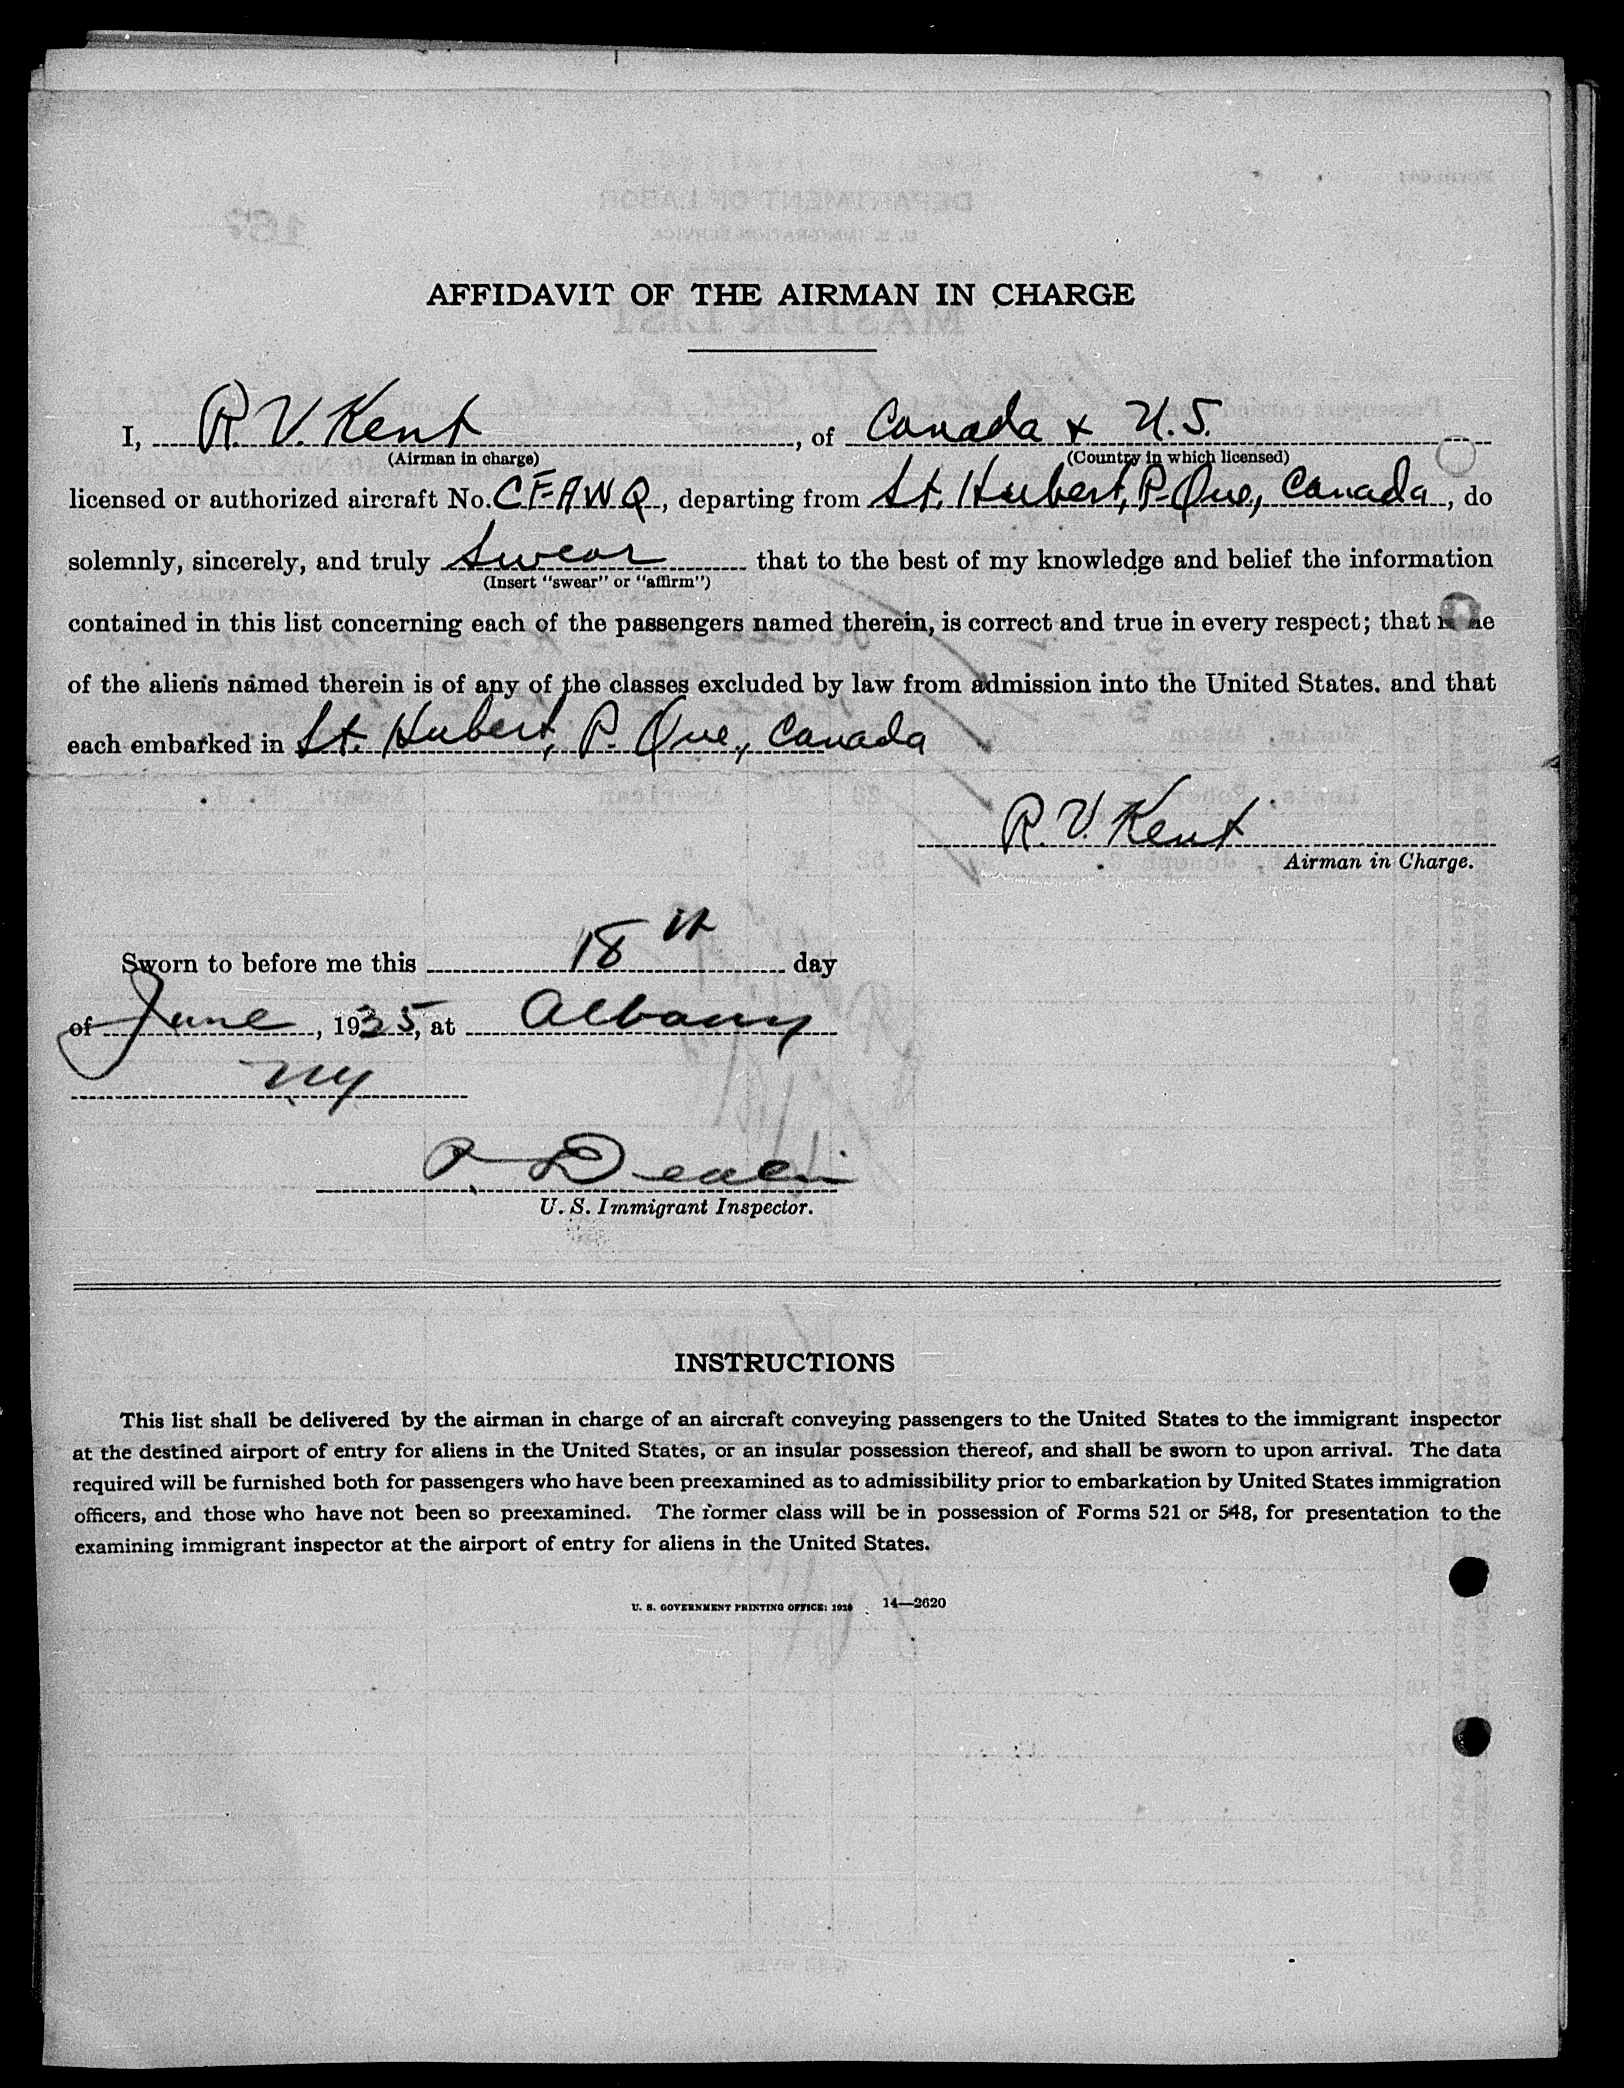 AFFIDAVIT OF THE AIRMAN IN CHARGE
I, R. V. Kent, of Canada & U.S.
(Airman in charge) (Country in which licensed)
licensed or authorized aircraft No. CF-AWQ, departing from St. Hubert, P. Que., Canada, do
solemnly, sincerely, and truly swear that to the best of my knowledge and belief the information
(Insert "swear" or "affirm")
contained in this list concerning each of the passengers named therein, is correct and true in every respect; that none
of the aliens named therein is of any of the classes excluded by law from admission into the United States. and that
each embarked in St. Hubert, P. Que., Canada
R. V. Kent
Airman in Charge.
Sworn to before me this 18th day
of June, 1935, at Albany
NY
U. S. Immigrant Inspector.
INSTRUCTIONS
This list shall be delivered by the airman in charge of an aircraft conveying passengers to the United States to the immigrant inspector
at the destined airport of entry for aliens in the United States, or an insular possession thereof, and shall be sworn to upon arrival. The data
required will be furnished both for passengers who have been preexamined as to admissibility prior to embarkation by United States immigration
officers, and those who have not been so preexamined. The former class will be in possession of Forms 521 or 548, for presentation to the
examining immigrant inspector at the airport of entry for aliens in the United States.
U. S. GOVERNMENT PRINTING OFFICE: 14—2620